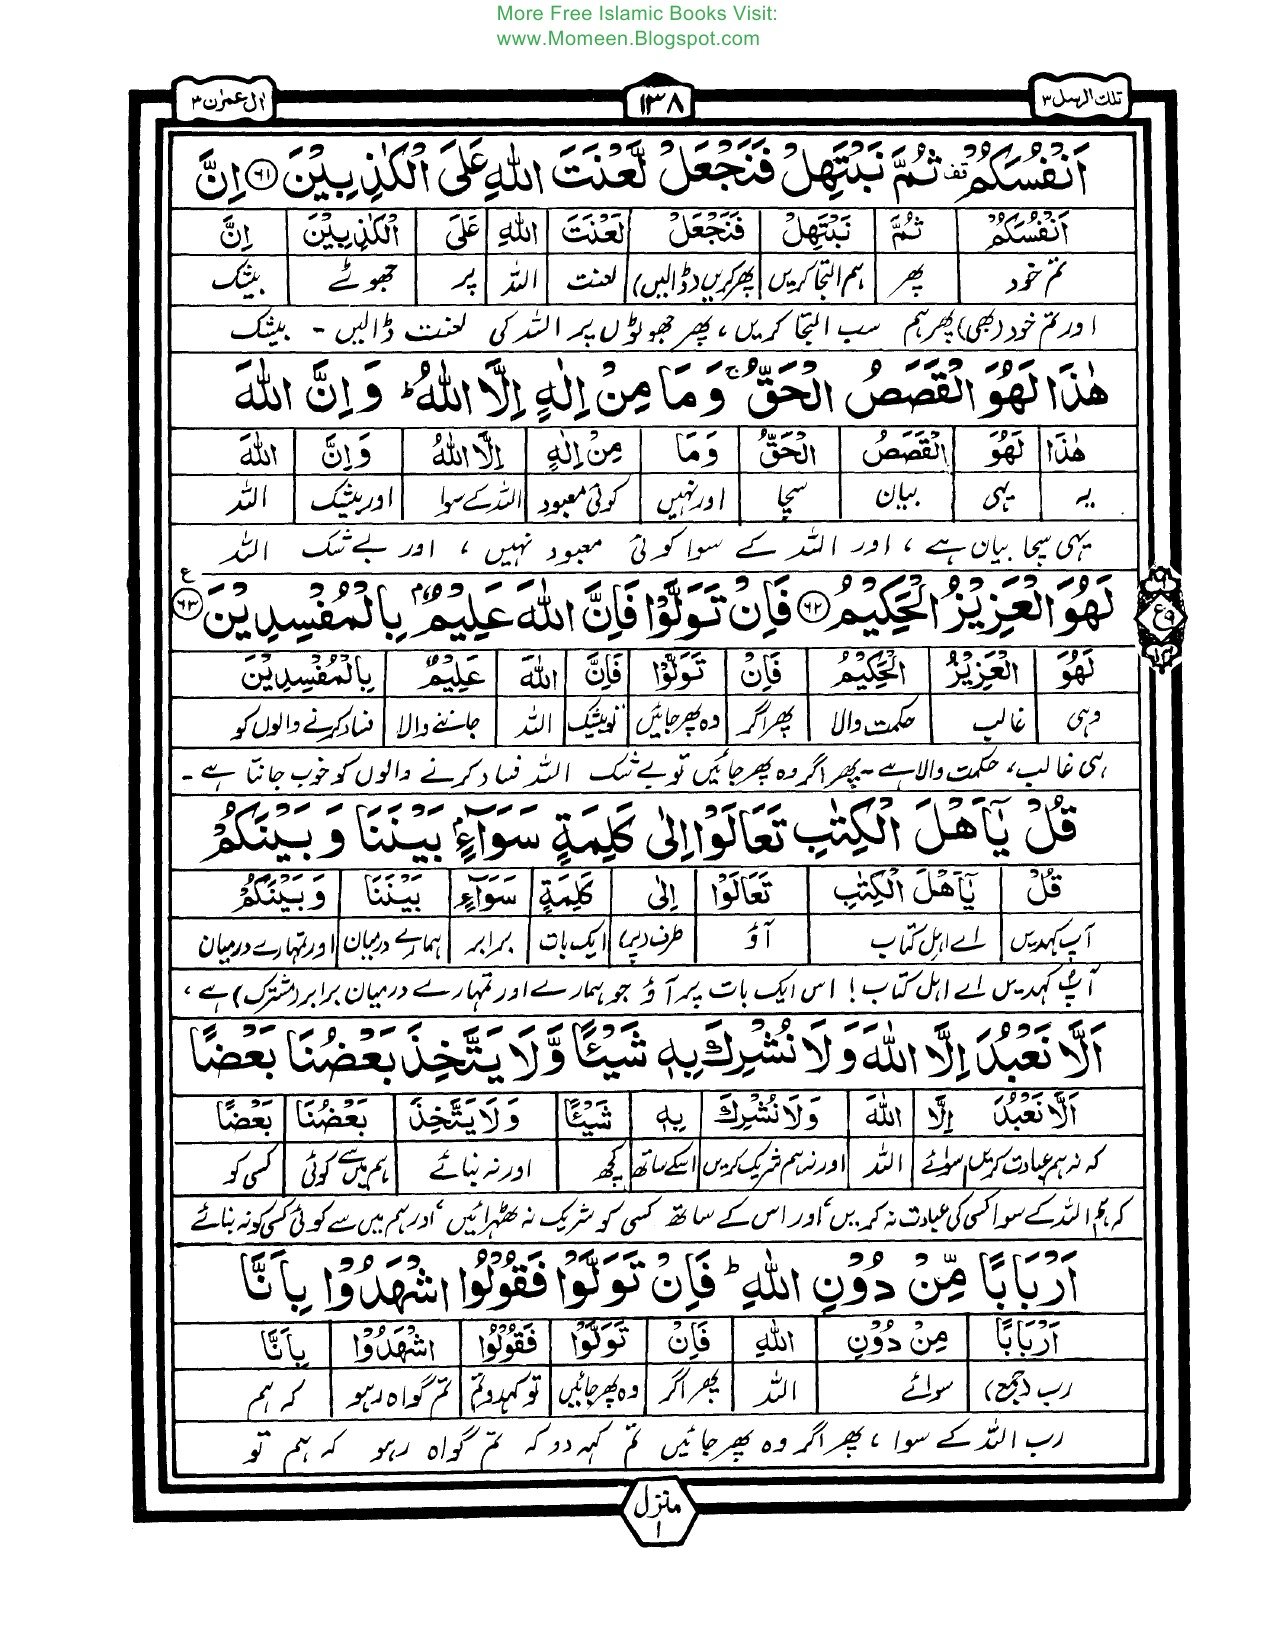 More Free Islamic Books Visit:
www.Momeen.Blogspot.com
تلك الرسل ٣
١٣٨
اٰل عمرٰن ٣
اَنْفُسَكُمْ قف ثُمَّ نَبْتَهِلْ فَنَجْعَلْ لَّعْنَتَ اللّٰهِ عَلَى الْكٰذِبِيْنَ ﴿٦١﴾ اِنَّ
اَنْفُسَكُمْ ثُمَّ نَبْتَهِلْ فَنَجْعَلْ لَعْنَتَ اللّٰهِ عَلَى الْكٰذِبِيْنَ اِنَّ
تم خود پھر ہم التجا کریں پھر کریں (ڈالیں) لعنت اللہ پر جھوٹے بیشک
اور تم خود (بھی) پھر ہم سب التجا کریں، پھر جھوٹوں پر اللہ کی لعنت ڈالیں - بیشک
هٰذَا لَهُوَ الْقَصَصُ الْحَقُّ ۚ وَمَا مِنْ اِلٰهٍ اِلَّا اللّٰهُ ؕ وَاِنَّ اللّٰهَ
هٰذَا لَهُوَ الْقَصَصُ الْحَقُّ وَمَا مِنْ اِلٰهٍ اِلَّا اللّٰهُ وَاِنَّ اللّٰهَ
یہ یہی بیان سچا اور نہیں کوئی معبود اللہ کے سوا اور بیشک اللہ
یہی سچا بیان ہے، اور اللہ کے سوا کوئی معبود نہیں، اور بے شک اللہ
لَهُوَ الْعَزِيْزُ الْحَكِيْمُ ﴿٦٢﴾ فَاِنْ تَوَلَّوْا فَاِنَّ اللّٰهَ عَلِيْمٌۢ بِالْمُفْسِدِيْنَ ﴿٦٣﴾ ع
لَهُوَ الْعَزِيْزُ الْحَكِيْمُ فَاِنْ تَوَلَّوْا فَاِنَّ اللّٰهَ عَلِيْمٌۢ بِالْمُفْسِدِيْنَ
وہی غالب حکمت والا پھر اگر وہ پھر جائیں تو بیشک اللہ جاننے والا فساد کرنے والوں کو
ہی غالب، حکمت والا ہے - پھر اگر وہ پھر جائیں تو بے شک اللہ فساد کرنے والوں کو خوب جانتا ہے -
قُلْ يٰٓاَهْلَ الْكِتٰبِ تَعَالَوْا اِلٰى كَلِمَةٍ سَوَآءٍۢ بَيْنَنَا وَبَيْنَكُمْ
قُلْ يٰٓاَهْلَ الْكِتٰبِ تَعَالَوْا اِلٰى كَلِمَةٍ سَوَآءٍ بَيْنَنَا وَبَيْنَكُمْ
آپ کہدیں اے اہل کتاب آؤ طرف (پر) ایک بات برابر ہمارے درمیان اور تمہارے درمیان
آپ کہدیں اے اہل کتاب! اس ایک بات پر آؤ جو ہمارے اور تمہارے درمیان برابر (مشترک) ہے،
اَلَّا نَعْبُدَ اِلَّا اللّٰهَ وَلَا نُشْرِكَ بِهٖ شَيْـًٔا وَّلَا يَتَّخِذَ بَعْضُنَا بَعْضًا
اَلَّا نَعْبُدَ اِلَّا اللّٰهَ وَلَا نُشْرِكَ بِهٖ شَيْـًٔا وَلَا يَتَّخِذَ بَعْضُنَا بَعْضًا
کہ نہ ہم عبادت کریں سوائے اللہ اور نہ ہم شریک کریں اسکے ساتھ کچھ اور نہ بنائے ہم میں سے کوئی کسی کو
کہ ہم اللہ کے سوا کسی کی عبادت نہ کریں، اور اس کے ساتھ کسی کو شریک نہ ٹھہرائیں، اور ہم میں سے کوئی کسی کو نہ بنائے
اَرْبَابًا مِّنْ دُوْنِ اللّٰهِ ؕ فَاِنْ تَوَلَّوْا فَقُوْلُوا اشْهَدُوْا بِاَنَّا
اَرْبَابًا مِنْ دُوْنِ اللّٰهِ فَاِنْ تَوَلَّوْا فَقُوْلُوا اشْهَدُوْا بِاَنَّا
رب (جمع) سوائے اللہ پھر اگر وہ پھر جائیں تو کہدو تم تم گواہ رہو کہ ہم
رب اللہ کے سوا، پھر اگر وہ پھر جائیں تم کہہ دو کہ تم گواہ رہو کہ ہم تو
منزل
١